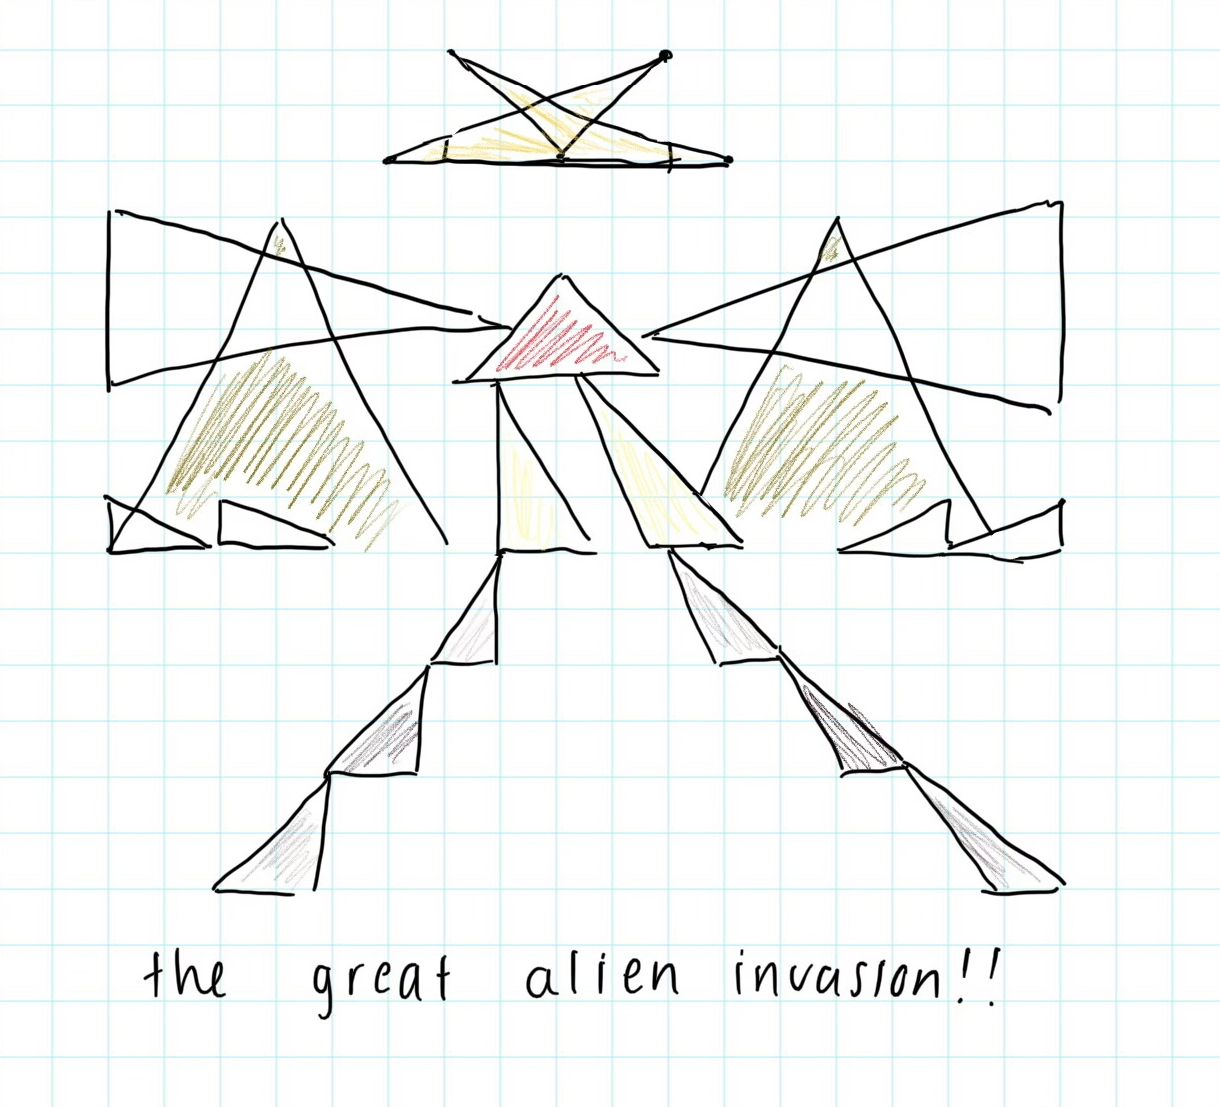 the great alien invasion!!